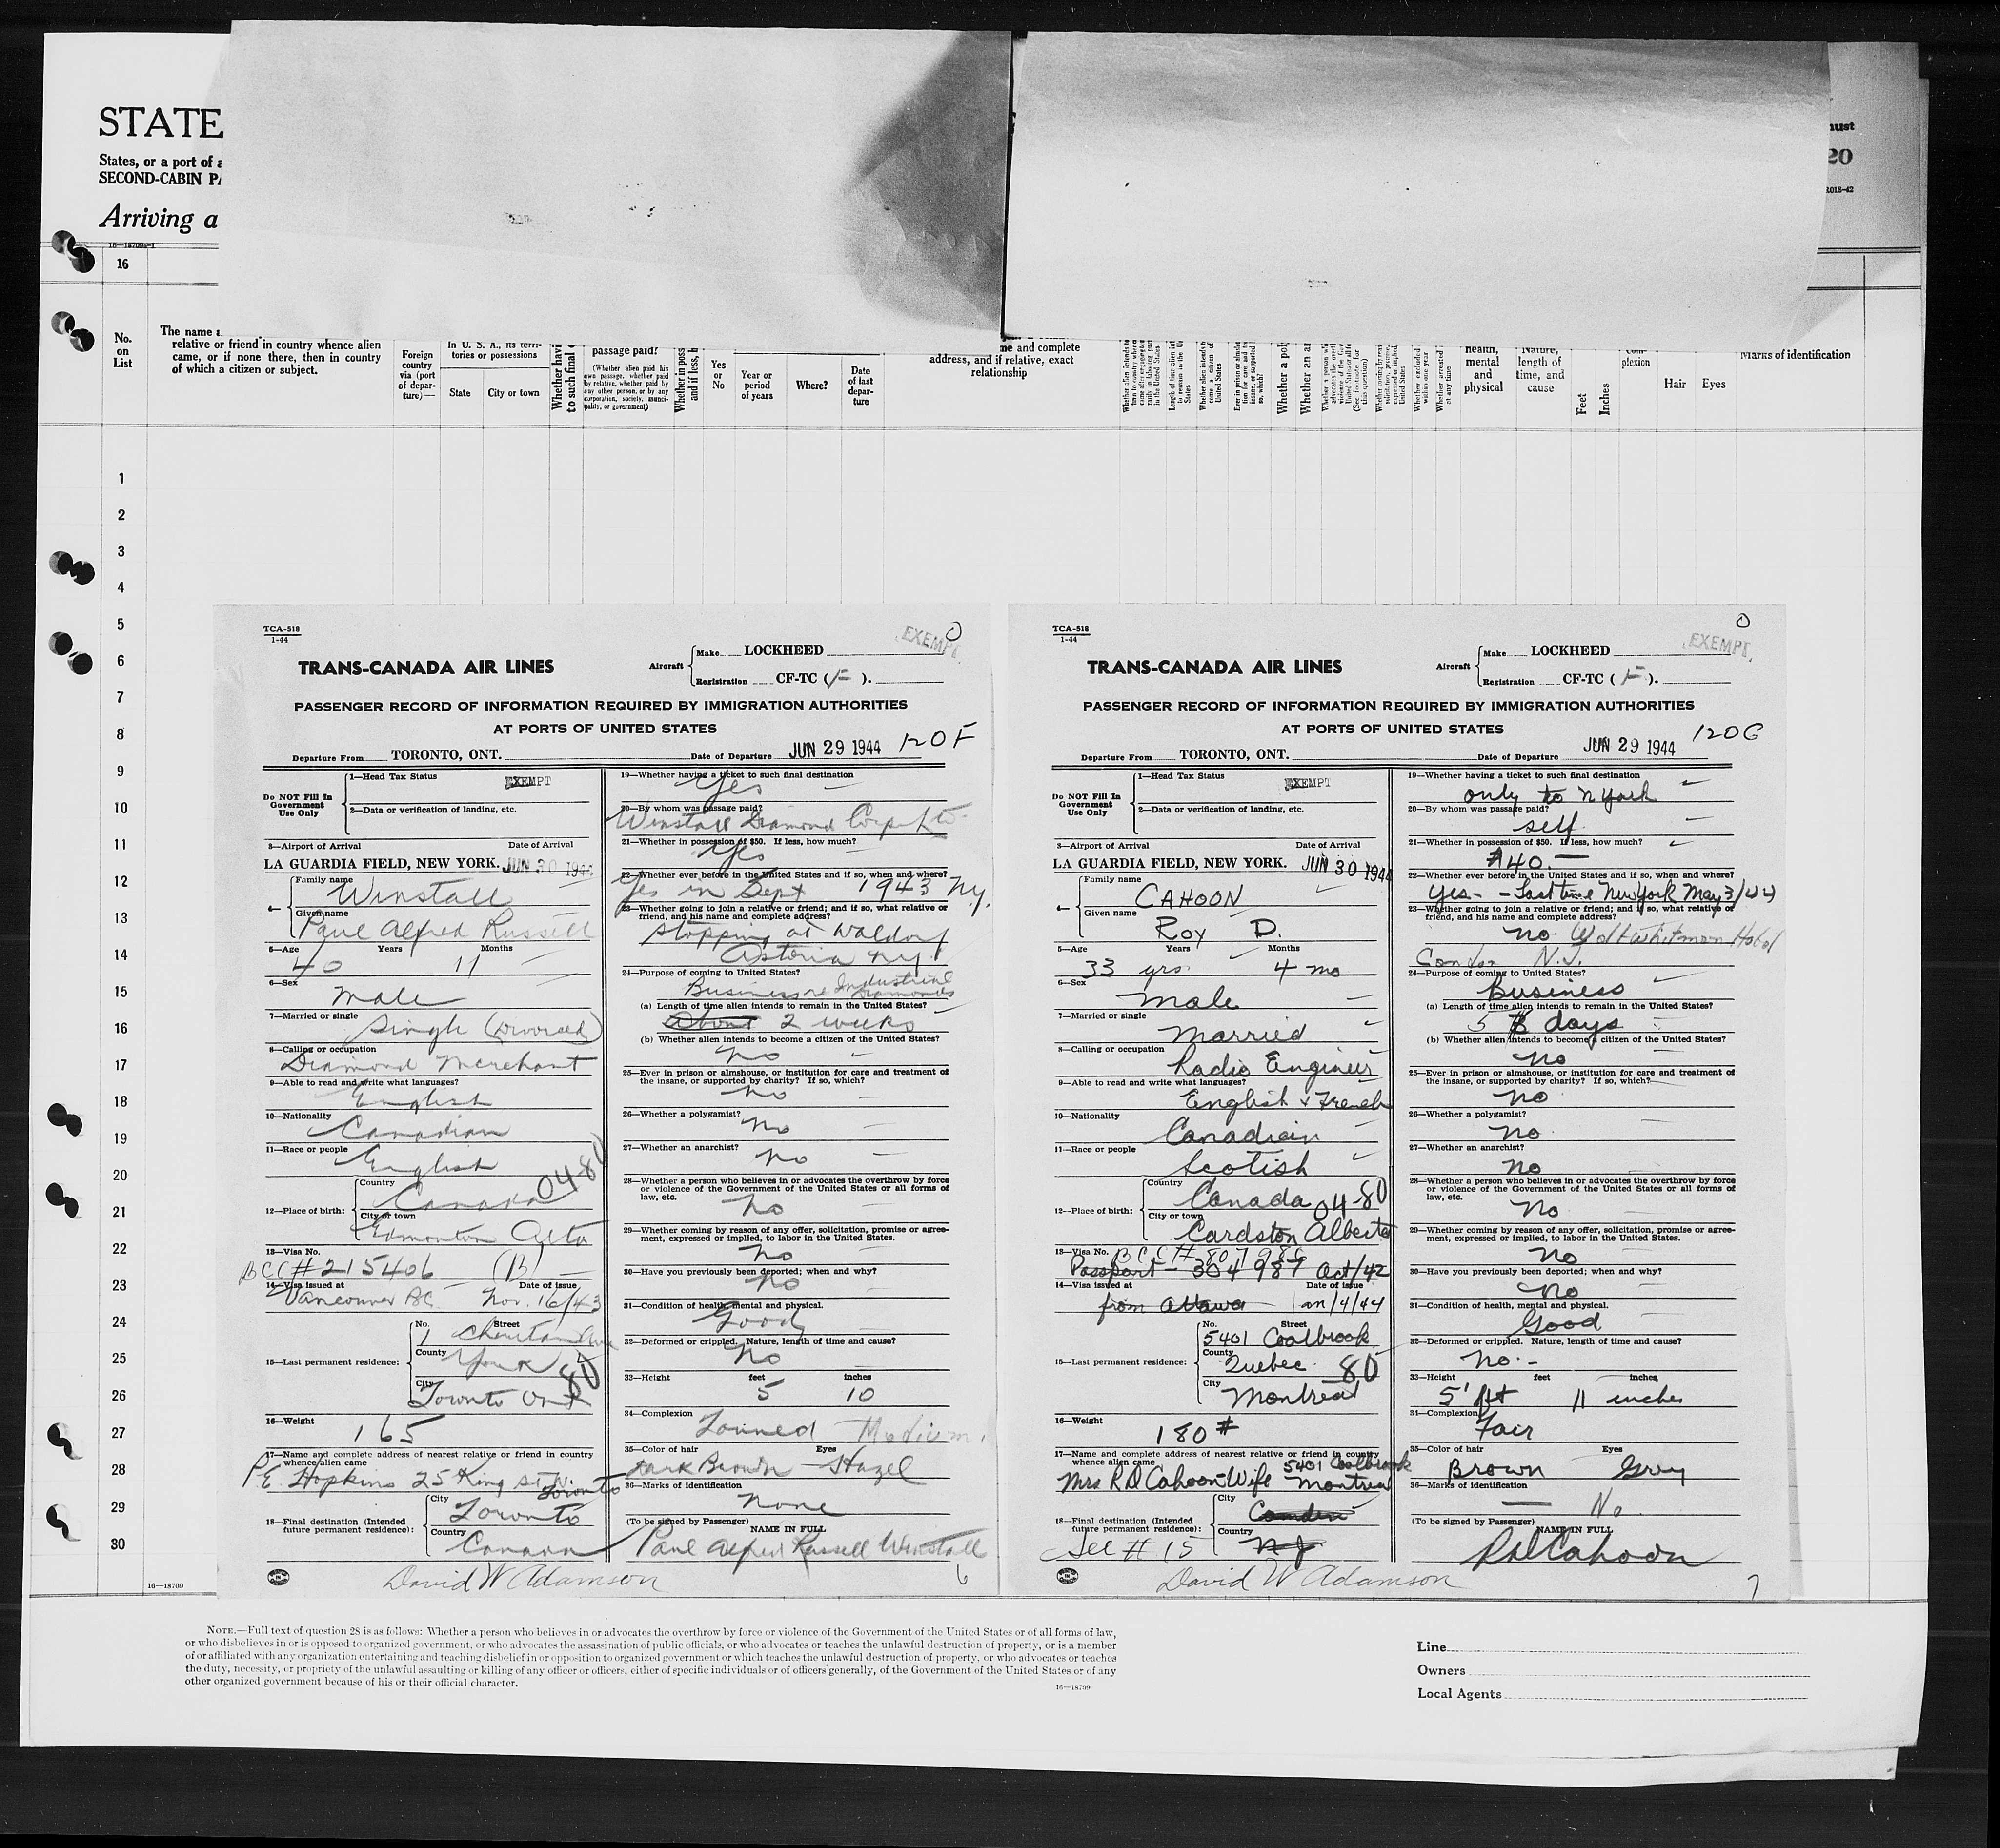 STATE
States, or a port of a
SECOND-CABIN PA
Arriving a
16—18709a-1
must
20
16
No.
on
List
The name a
relative or friend in country whence alien
came, or if none there, then in country
of which a citizen or subject.
Foreign
country
via (port
of depar-
ture)—
In U. S. A., its terri-
tories or possessions
State
City or town
Whether havi
to such final d
passage paid?
(Whether alien paid his
own passage, whether paid
by relative, whether paid by
any other person, or by any
corporation, society, munici-
pality, or government)
Whether in poss
and if less, h
Yes
or
No
Year or
period
of years
Where?
Date
of last
depar-
ture
me and complete
address, and if relative, exact
relationship
Whether a pol
Whether an a
health,
mental
and
physical
Nature,
length of
time, and
cause
Feet
Inches
Com-
plexion
Hair
Eyes
Marks of identification
1
2
3
4
5
6
7
8
9
10
11
12
13
14
15
16
17
18
19
20
21
22
23
24
25
26
27
28
29
30
16—18709
TCA-518
1-44
TRANS-CANADA AIR LINES
Aircraft
Make LOCKHEED
Registration CF-TC (F).
EXEMPT.
O
PASSENGER RECORD OF INFORMATION REQUIRED BY IMMIGRATION AUTHORITIES
AT PORTS OF UNITED STATES
Departure From TORONTO, ONT. Date of Departure JUN 29 1944 120F
Do NOT Fill In
Government
Use Only
1—Head Tax Status EXEMPT
2—Data or verification of landing, etc.
3—Airport of Arrival Date of Arrival
LA GUARDIA FIELD, NEW YORK. JUN 30 1944
4— Family name Winstall
Given name Paul Alfred Russell
5—Age Years Months
40 11
6—Sex
Male
7—Married or single
Single (Divorced)
8—Calling or occupation
Diamond Merchant
9—Able to read and write what languages?
English
10—Nationality
Canadian
11—Race or people
English
12—Place of birth:
Country
Canada 04-80
City or town
Edmonton Alta
13—Visa No.
BCC# 215406 (B)
14—Visa issued at Date of issue
Vancouver BC Nov. 16/43
15—Last permanent residence:
No. Street
1
County
York 80
City
Toronto Ont
16—Weight
165
17—Name and complete address of nearest relative or friend in country
whence alien came
P.E. Hopkins 25 King St W. Toronto
18—Final destination (Intended
future permanent residence):
City
Toronto
Country
Canada
David W Adamson
19—Whether having a ticket to such final destination
Yes
20—By whom was passage paid?
Winstall Diamond Corp Ltd
21—Whether in possession of $50. If less, how much?
Yes
22—Whether ever before in the United States and if so, when and where?
Yes in Sept 1943 N.Y.
23—Whether going to join a relative or friend; and if so, what relative or
friend, and his name and complete address?
Stopping at Waldorf
Astoria N.Y.
24—Purpose of coming to United States?
Business re Industrial
Diamonds
(a) Length of time alien intends to remain in the United States?
About 2 weeks
(b) Whether alien intends to become a citizen of the United States?
No
25—Ever in prison or almshouse, or institution for care and treatment of
the insane, or supported by charity? If so, which?
No
26—Whether a polygamist?
No
27—Whether an anarchist?
No
28—Whether a person who believes in or advocates the overthrow by force
or violence of the Government of the United States or all forms of
law, etc.
No
29—Whether coming by reason of any offer, solicitation, promise or agree-
ment, expressed or implied, to labor in the United States.
No
30—Have you previously been deported; when and why?
No
31—Condition of health, mental and physical.
Good
32—Deformed or crippled. Nature, length of time and cause?
No
33—Height feet inches
5 10
34—Complexion
Tanned Medium
35—Color of hair Eyes
Dark Brown Hazel
36—Marks of identification
None
(To be signed by Passenger) NAME IN FULL
Paul Alfred Russell Winstall
6
TCA-518
1-44
TRANS-CANADA AIR LINES
Aircraft
Make LOCKHEED
Registration CF-TC (F).
EXEMPT.
O
PASSENGER RECORD OF INFORMATION REQUIRED BY IMMIGRATION AUTHORITIES
AT PORTS OF UNITED STATES
Departure From TORONTO, ONT. Date of Departure JUN 29 1944 120G
Do NOT Fill In
Government
Use Only
1—Head Tax Status EXEMPT
2—Data or verification of landing, etc.
3—Airport of Arrival Date of Arrival
LA GUARDIA FIELD, NEW YORK. JUN 30 1944
4— Family name CAHOON
Given name Roy D.
5—Age Years Months
33 yrs. 4 mo
6—Sex
Male
7—Married or single
Married
8—Calling or occupation
Radio Engineer
9—Able to read and write what languages?
English & French
10—Nationality
Canadian
11—Race or people
Scotish
12—Place of birth:
Country
Canada 04-80
City or town
Cardston Alberta
13—Visa No. BCC#
Passport - 304987 Oct/42
14—Visa issued at Date of issue
from Ottawa Jan/4/44
15—Last permanent residence:
No. Street
5401 Coolbrook
County
Quebec. 80
City
Montreal
16—Weight
180 #
17—Name and complete address of nearest relative or friend in country
whence alien came 5401 Coolbrook
Mrs R D Cahoon-Wife Montreal
18—Final destination (Intended
future permanent residence):
City
Camden
Country
See # 15 N J
David W Adamson
19—Whether having a ticket to such final destination
only to N York
20—By whom was passage paid?
self
21—Whether in possession of $50. If less, how much?
$40.—
22—Whether ever before in the United States and if so, when and where?
Yes - Last time New York May 3/44
23—Whether going to join a relative or friend; and if so, what relative or
friend, and his name and complete address?
no. Walt Whitman Hotel
Camden N.J.
24—Purpose of coming to United States?
Business
(a) Length of time alien intends to remain in the United States?
5 days
(b) Whether alien intends to become a citizen of the United States?
No
25—Ever in prison or almshouse, or institution for care and treatment of
the insane, or supported by charity? If so, which?
No
26—Whether a polygamist?
No
27—Whether an anarchist?
No
28—Whether a person who believes in or advocates the overthrow by force
or violence of the Government of the United States or all forms of
law, etc.
No
29—Whether coming by reason of any offer, solicitation, promise or agree-
ment, expressed or implied, to labor in the United States.
No
30—Have you previously been deported; when and why?
No
31—Condition of health, mental and physical.
Good
32—Deformed or crippled. Nature, length of time and cause?
No.-
33—Height feet inches
5' ft 11 inches
34—Complexion
Fair
35—Color of hair Eyes
Brown Grey
36—Marks of identification
— No
(To be signed by Passenger) NAME IN FULL
RDCahoon
7
NOTE.—Full text of question 28 is as follows: Whether a person who believes in or advocates the overthrow by force or violence of the Government of the United States or of all forms of law,
or who disbelieves in or is opposed to organized government, or who advocates the assassination of public officials, or who advocates or teaches the unlawful destruction of property, or is a member
of or affiliated with any organization entertaining and teaching disbelief in or opposition to organized government or which teaches the unlawful destruction of property, or who advocates or teaches
the duty, necessity, or propriety of the unlawful assaulting or killing of any officer or officers, either of specific individuals or of officers generally, of the Government of the United States or of any
other organized government because of his or their official character.
16—18709
Line
Owners
Local Agents